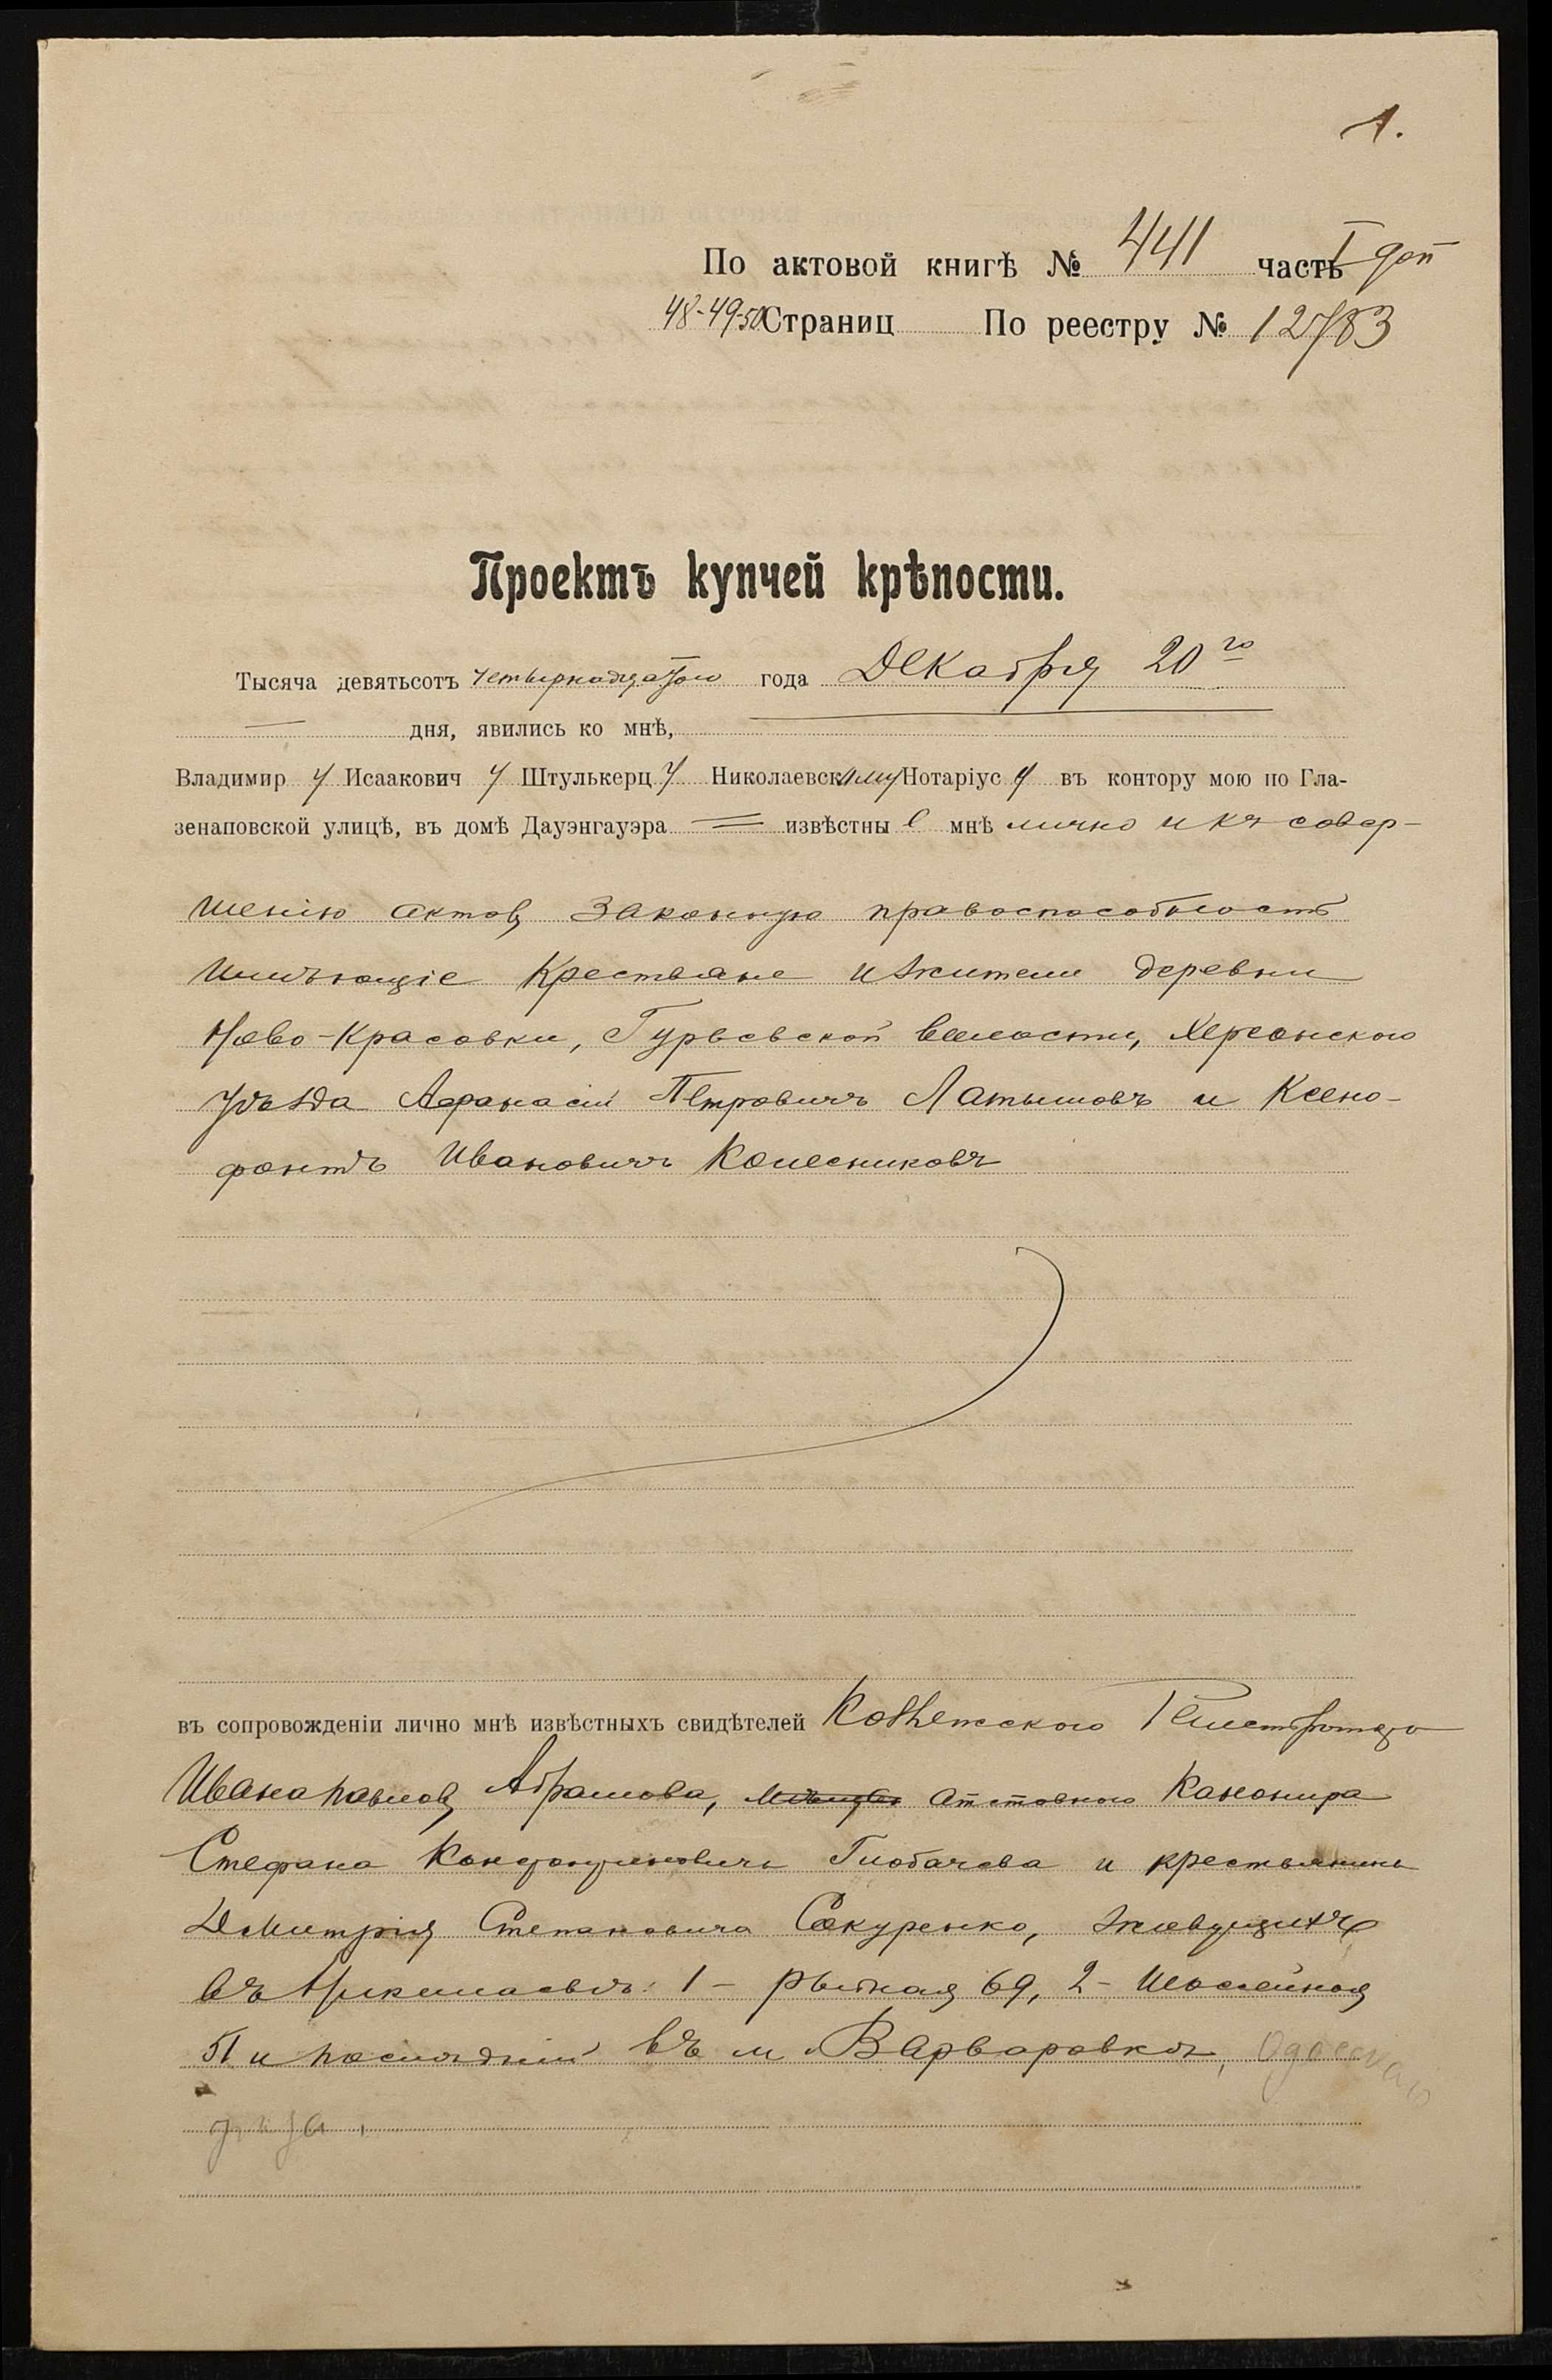 1.
По актовой книгѣ № 441 часть I доп
48-49-50 Страниц По реестру № 12783
Проектъ купчей крѣпости.
Тысяча девятьсотъ четырнадцатаго года Декабря 20го
дня, явились ко мнѣ,
Владимир у Исаакович у Штулькерц у Николаевскому Нотаріус у въ контору мою по Гла-
зенаповской улицѣ, въ домѣ Дауэнгауэра = извѣстны е мнѣ лично и къ совер-
шенію актов законную правоспособность
имѣющіе Крестьяне и жители деревни
Ново-Красовки, Гурьевской волости, Херсонского
уѣзда Афанасій Петровичъ Латышовъ и Ксено-
фонтъ Ивановичъ Колесниковъ
въ сопровожденіи лично мнѣ извѣстныхъ свидѣтелей
Ивана Павлов Абрамова, отставного Канонира
Стефана Гнобачева и крестьянина
Димитрія Степановича Сокуренко, живущихъ
въ Николаевѣ: 1 – Рыбная 69, 2 – Шоссейная
51 и послѣдній въ м Варваровкѣ, Одесскаго
уѣзда.